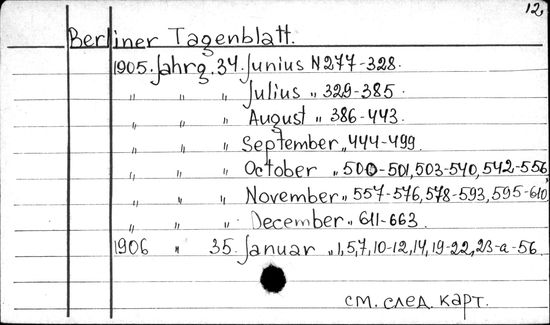 12.
Berliner Tagenblatt.
1905. Jahrg. 34. Junius N 277-328.
" " " Julius " 329-385.
" " " August " 386-443.
" " " September " 444-499.
" " " October " 500-501, 503-540, 542-556,
" " " November " 557-576, 578-593, 595-610,
" " " December " 611-663.
1906 " 35. Januar " 1, 5, 7, 10-12, 14, 19-22, 23-a-56.
см. след. карт.